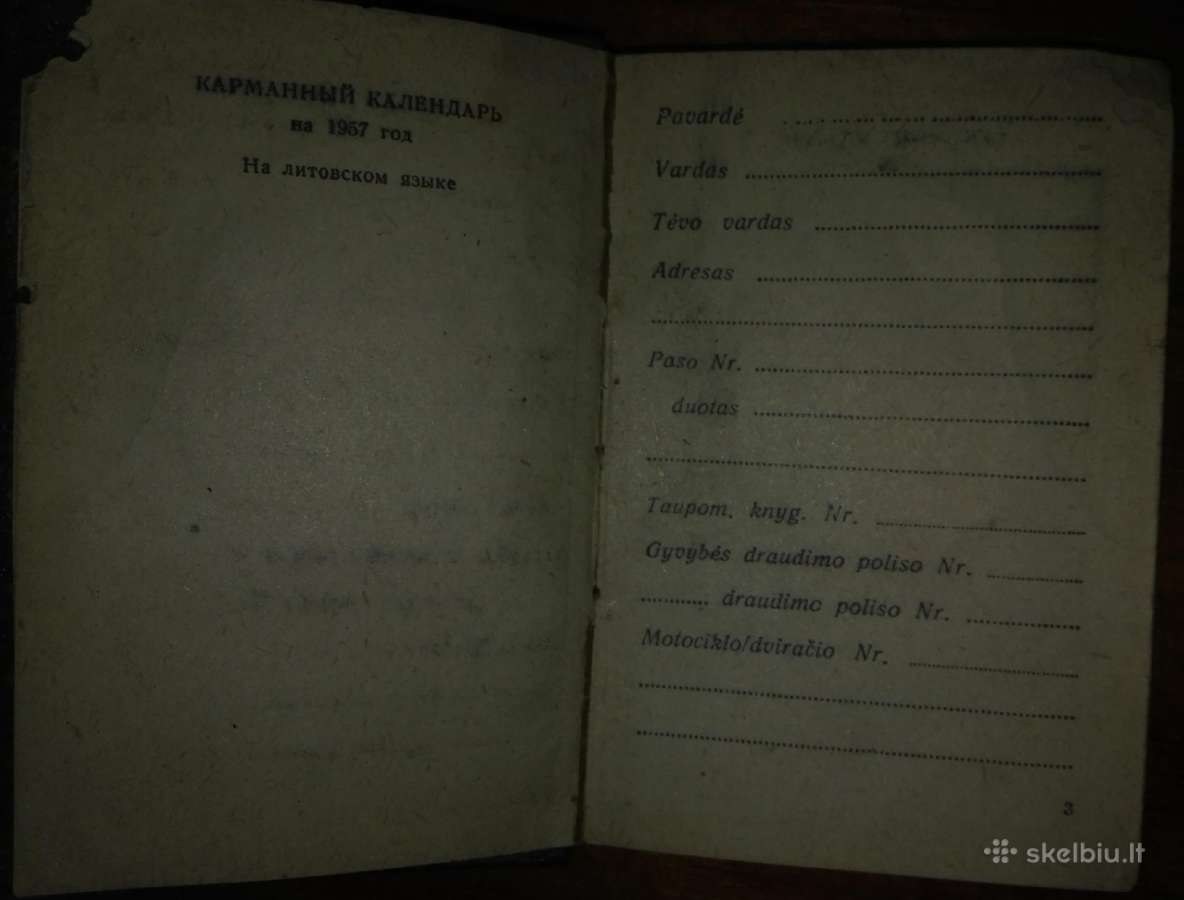 КАРМАННЫЙ КАЛЕНДАРЬ
на 1957 год
На литовском языке
Pavardė
Vardas
Tėvo vardas
Adresas
Paso Nr.
duotas
Taupom. knyg. Nr.
Gyvybės draudimo poliso Nr.
draudimo poliso Nr.
Motociklo/dviračio Nr.
3
skelbiu.lt